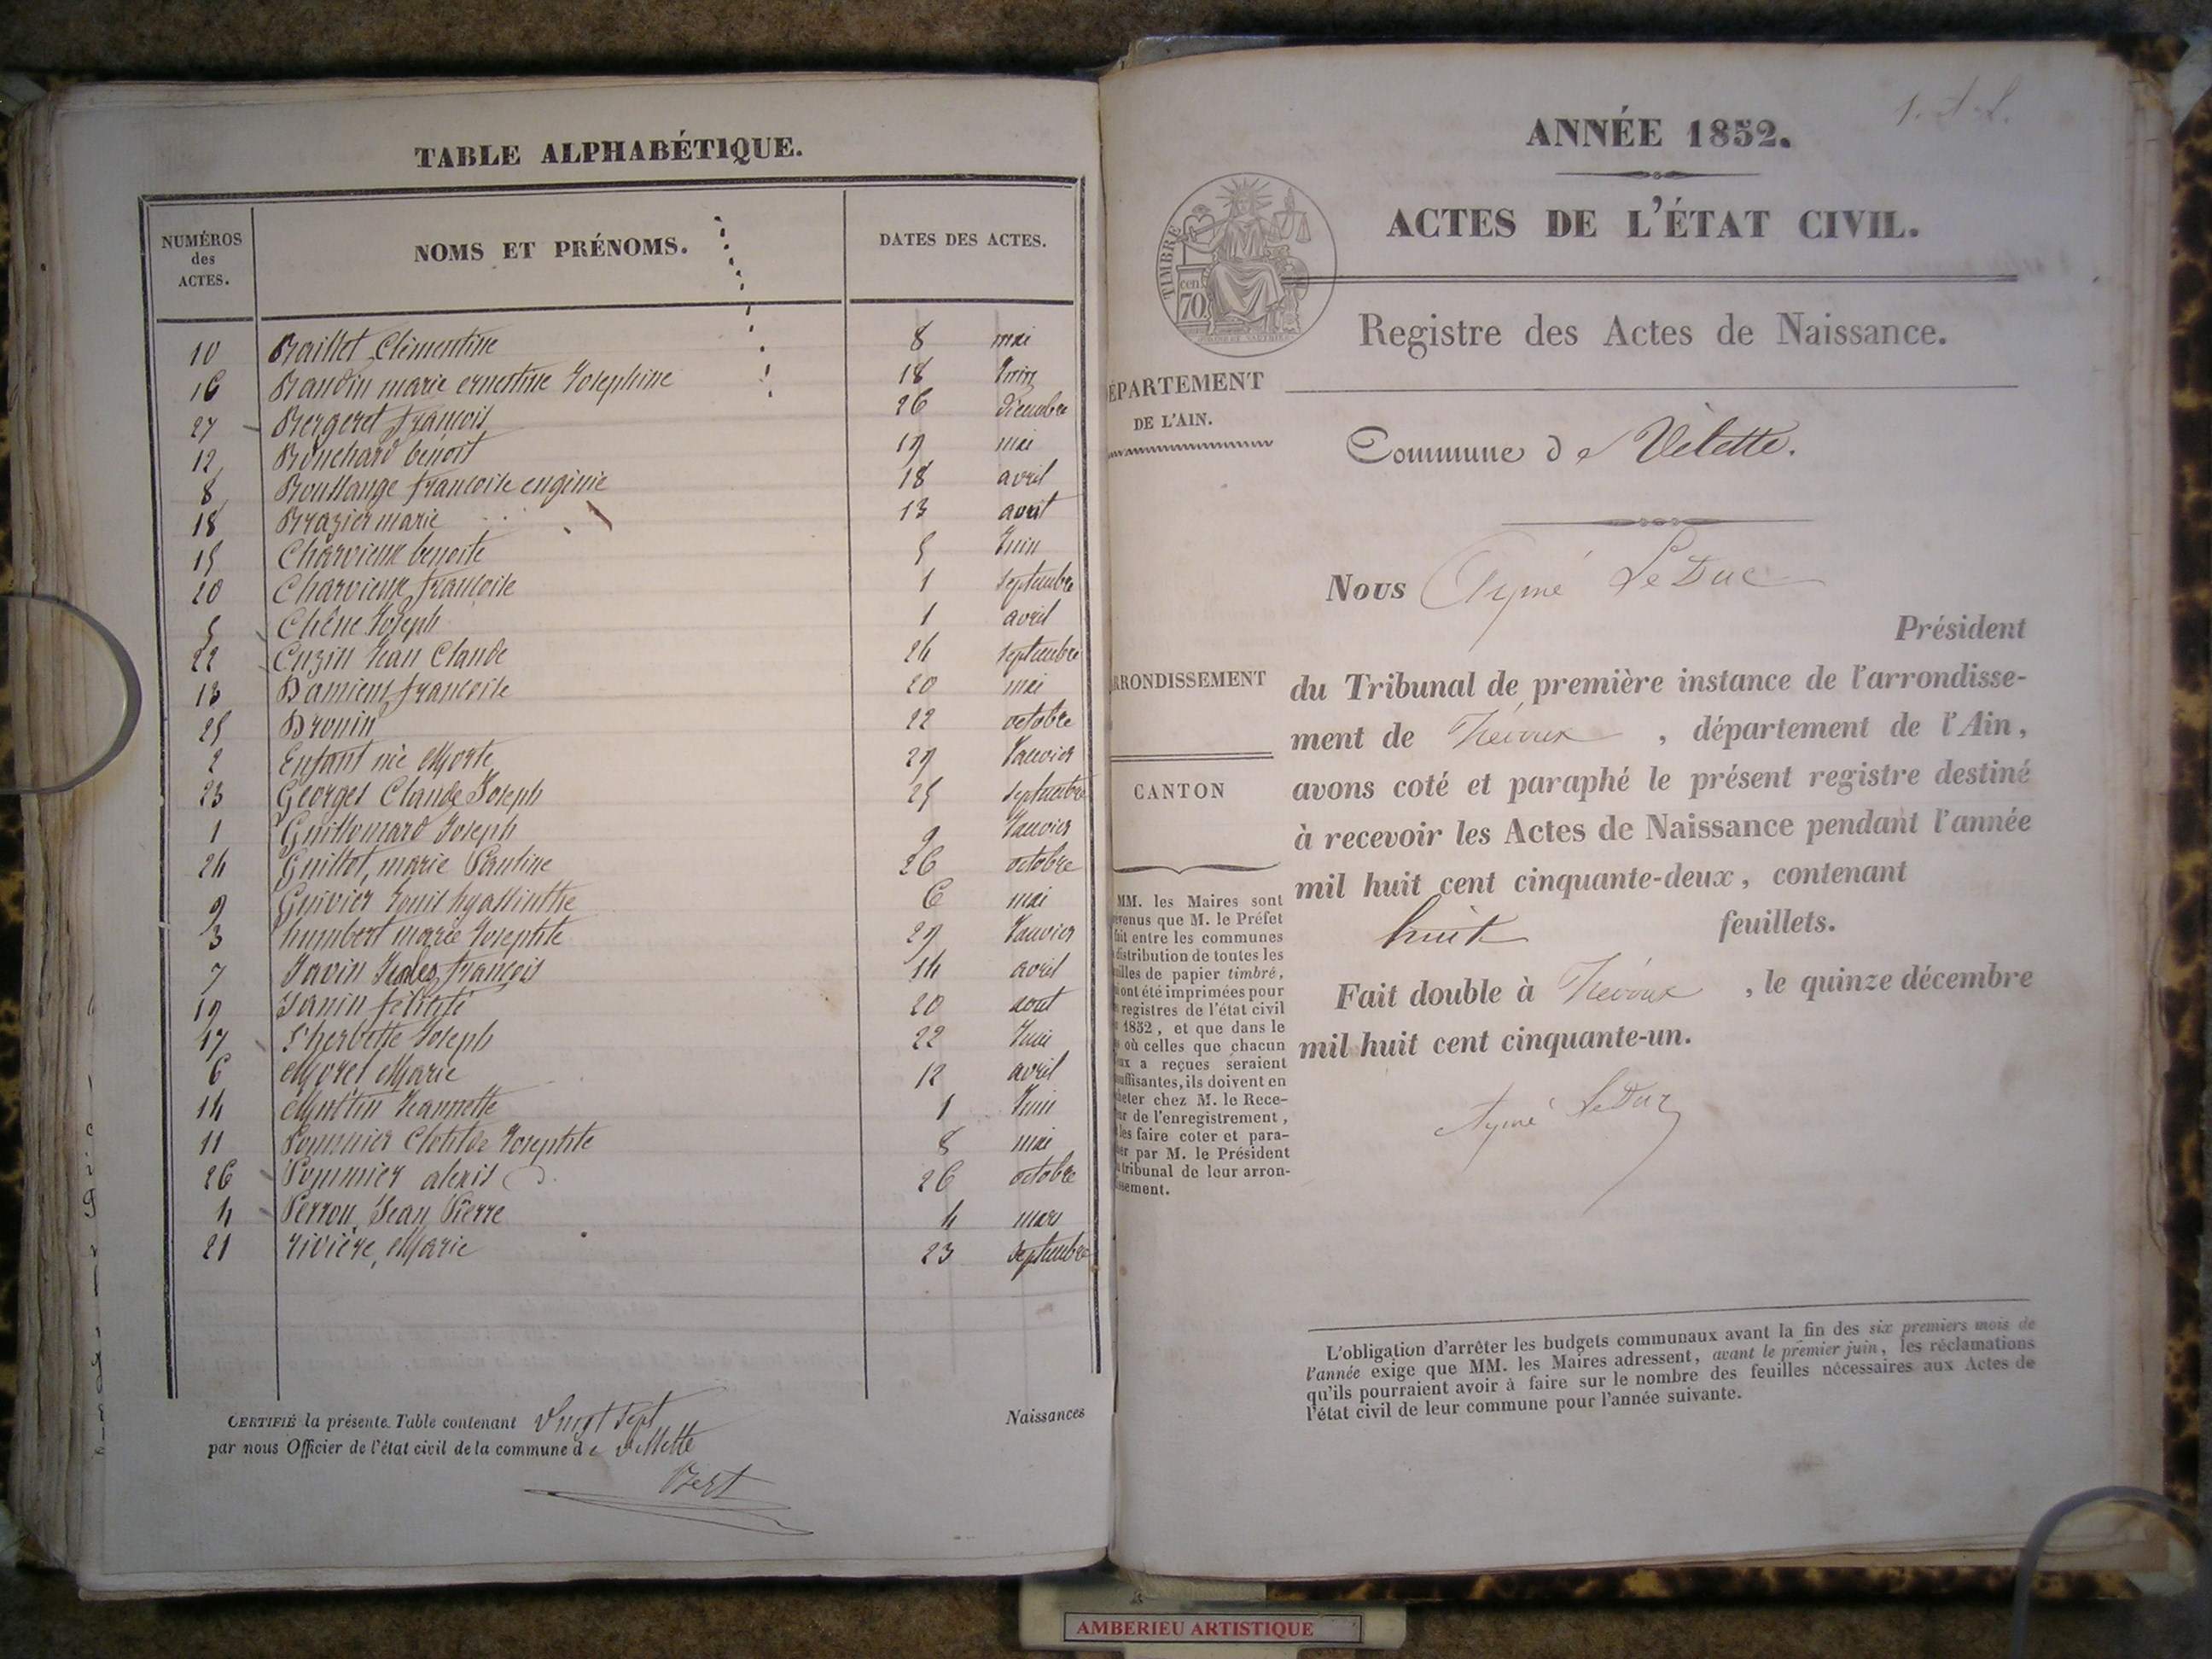 TABLE ALPHABÉTIQUE.
NUMÉROS des ACTES. NOMS ET PRÉNOMS. DATES DES ACTES.
10 Baillet Clémentine 8 mai
16 Baudin marie ernestine Josephine 18 Juin
27 Bergeret françois 26 décembre
12 Bouchard benoit 19 mai
8 Boullange francoise eugénie 18 avril
18 Brazier marie 13 aout
15 Charvieux benoite 5 Juin
20 Charvieux francoise 1 septembre
5 Chêne Joseph 1 avril
22 Cuzin Jean Claude 24 septembre
13 Damiens francoise 20 mai
25 Drouin 22 octobre
2 Enfant née Morte 29 Janvier
23 Georges Claude Joseph 25 septembre
1 Guillomard Joseph 9 Janvier
24 Guillot, marie Pauline 26 octobre
9 Guivier Louis hyassinthe 6 mai
3 humbert marie Josephte 29 Janvier
7 Javin françois 14 avril
19 Janin félicité 20 aout
17 L'herbette Joseph 22 Juin
6 Morel Marie 12 avril
14 Jeannette 1 Juin
11 Pommier Clotilde Josephte 8 mai
26 Pommier alexis 26 octobre
4 Perron Jean Pierre 4 mars
21 rivière, Marie 23 septembre
CERTIFIÉ la présente Table contenant Vingt sept Naissances
par nous Officier de l'état civil de la commune de Villette
Bert
ANNÉE 1852.
ACTES DE L'ÉTAT CIVIL.
TIMBRE
cen.
70
Registre des Actes de Naissance.
ÉPARTEMENT
DE L'AIN.
Commune de Vilette.
Nous Aymé LeDuc
Président
RRONDISSEMENT
du Tribunal de première instance de l'arrondisse-
ment de Trévoux, département de l'Ain,
CANTON
avons coté et paraphé le présent registre destiné
à recevoir les Actes de Naissance pendant l'année
mil huit cent cinquante-deux, contenant
huit feuillets.
Fait double à Trévoux, le quinze décembre
mil huit cent cinquante-un.
Aymé LeDuc
MM. les Maires sont
evenus que M. le Préfet
fait entre les communes
distribution de toutes les
uilles de papier timbré,
i ont été imprimées pour
s registres de l'état civil
e 1852, et que dans le
s où celles que chacun
eux a reçues seraient
suffisantes, ils doivent en
cheter chez M. le Rece-
ur de l'enregistrement,
les faire coter et para-
her par M. le Président
u tribunal de leur arron-
ssement.
L'obligation d'arrêter les budgets communaux avant la fin des six premiers mois de
l'année exige que MM. les Maires adressent, avant le premier juin, les réclamations
qu'ils pourraient avoir à faire sur le nombre des feuilles nécessaires aux Actes de
l'état civil de leur commune pour l'année suivante.
AMBERIEU ARTISTIQUE